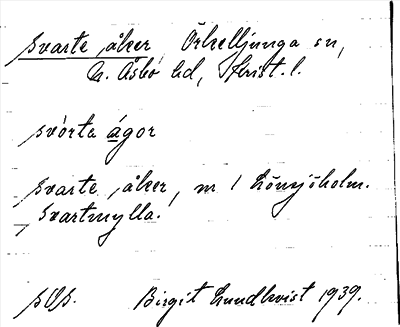 svarte åker Örkelljunga sn,
N. Åsbo hd, Krist. l.
svòrta ágor
svarte åker, m / Lönsjöholm.
svartmylla.
sOs. Birgit Lundkvist 1939.